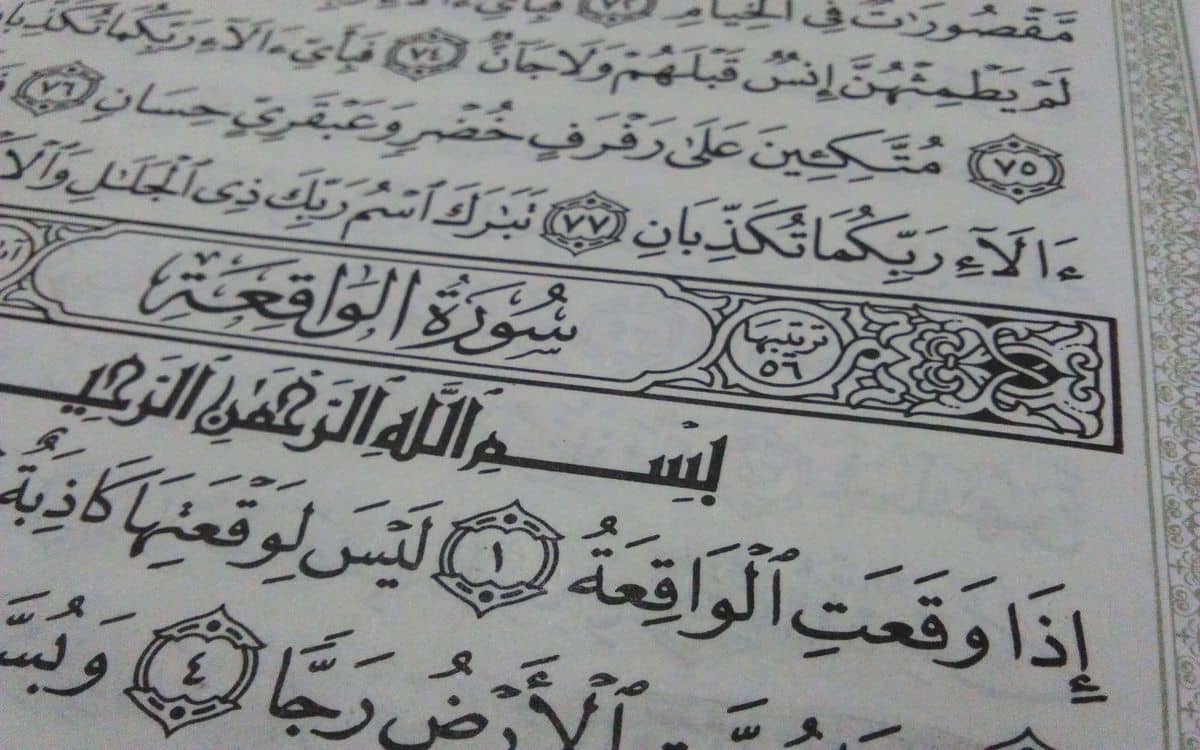 مَّقْصُورَٰتٌ فِى ٱلْخِيَامِ ٧٢ فَبِأَىِّ
لَمْ يَطْمِثْهُنَّ إِنسٌ قَبْلَهُمْ وَلَا جَآنٌّ ٧٤ فَبِأَىِّ ءَالَآءِ رَبِّكُمَا تُكَذِّبَانِ
٧٥ مُتَّكِـِٔينَ عَلَىٰ رَفْرَفٍ خُضْرٍ وَعَبْقَرِىٍّ حِسَانٍ ٧٦
ءَالَآءِ رَبِّكُمَا تُكَذِّبَانِ ٧٧ تَبَٰرَكَ ٱسْمُ رَبِّكَ ذِى ٱلْجَلَٰلِ
ترتيبها ٥٦ سُورَةُ الوَاقِعَةِ
بِسْمِ ٱللَّهِ ٱلرَّحْمَٰنِ
إِذَا وَقَعَتِ ٱلْوَاقِعَةُ ١ لَيْسَ لِوَقْعَتِهَا كَاذِبَةٌ
ٱلْأَرْضُ رَجًّا ٤